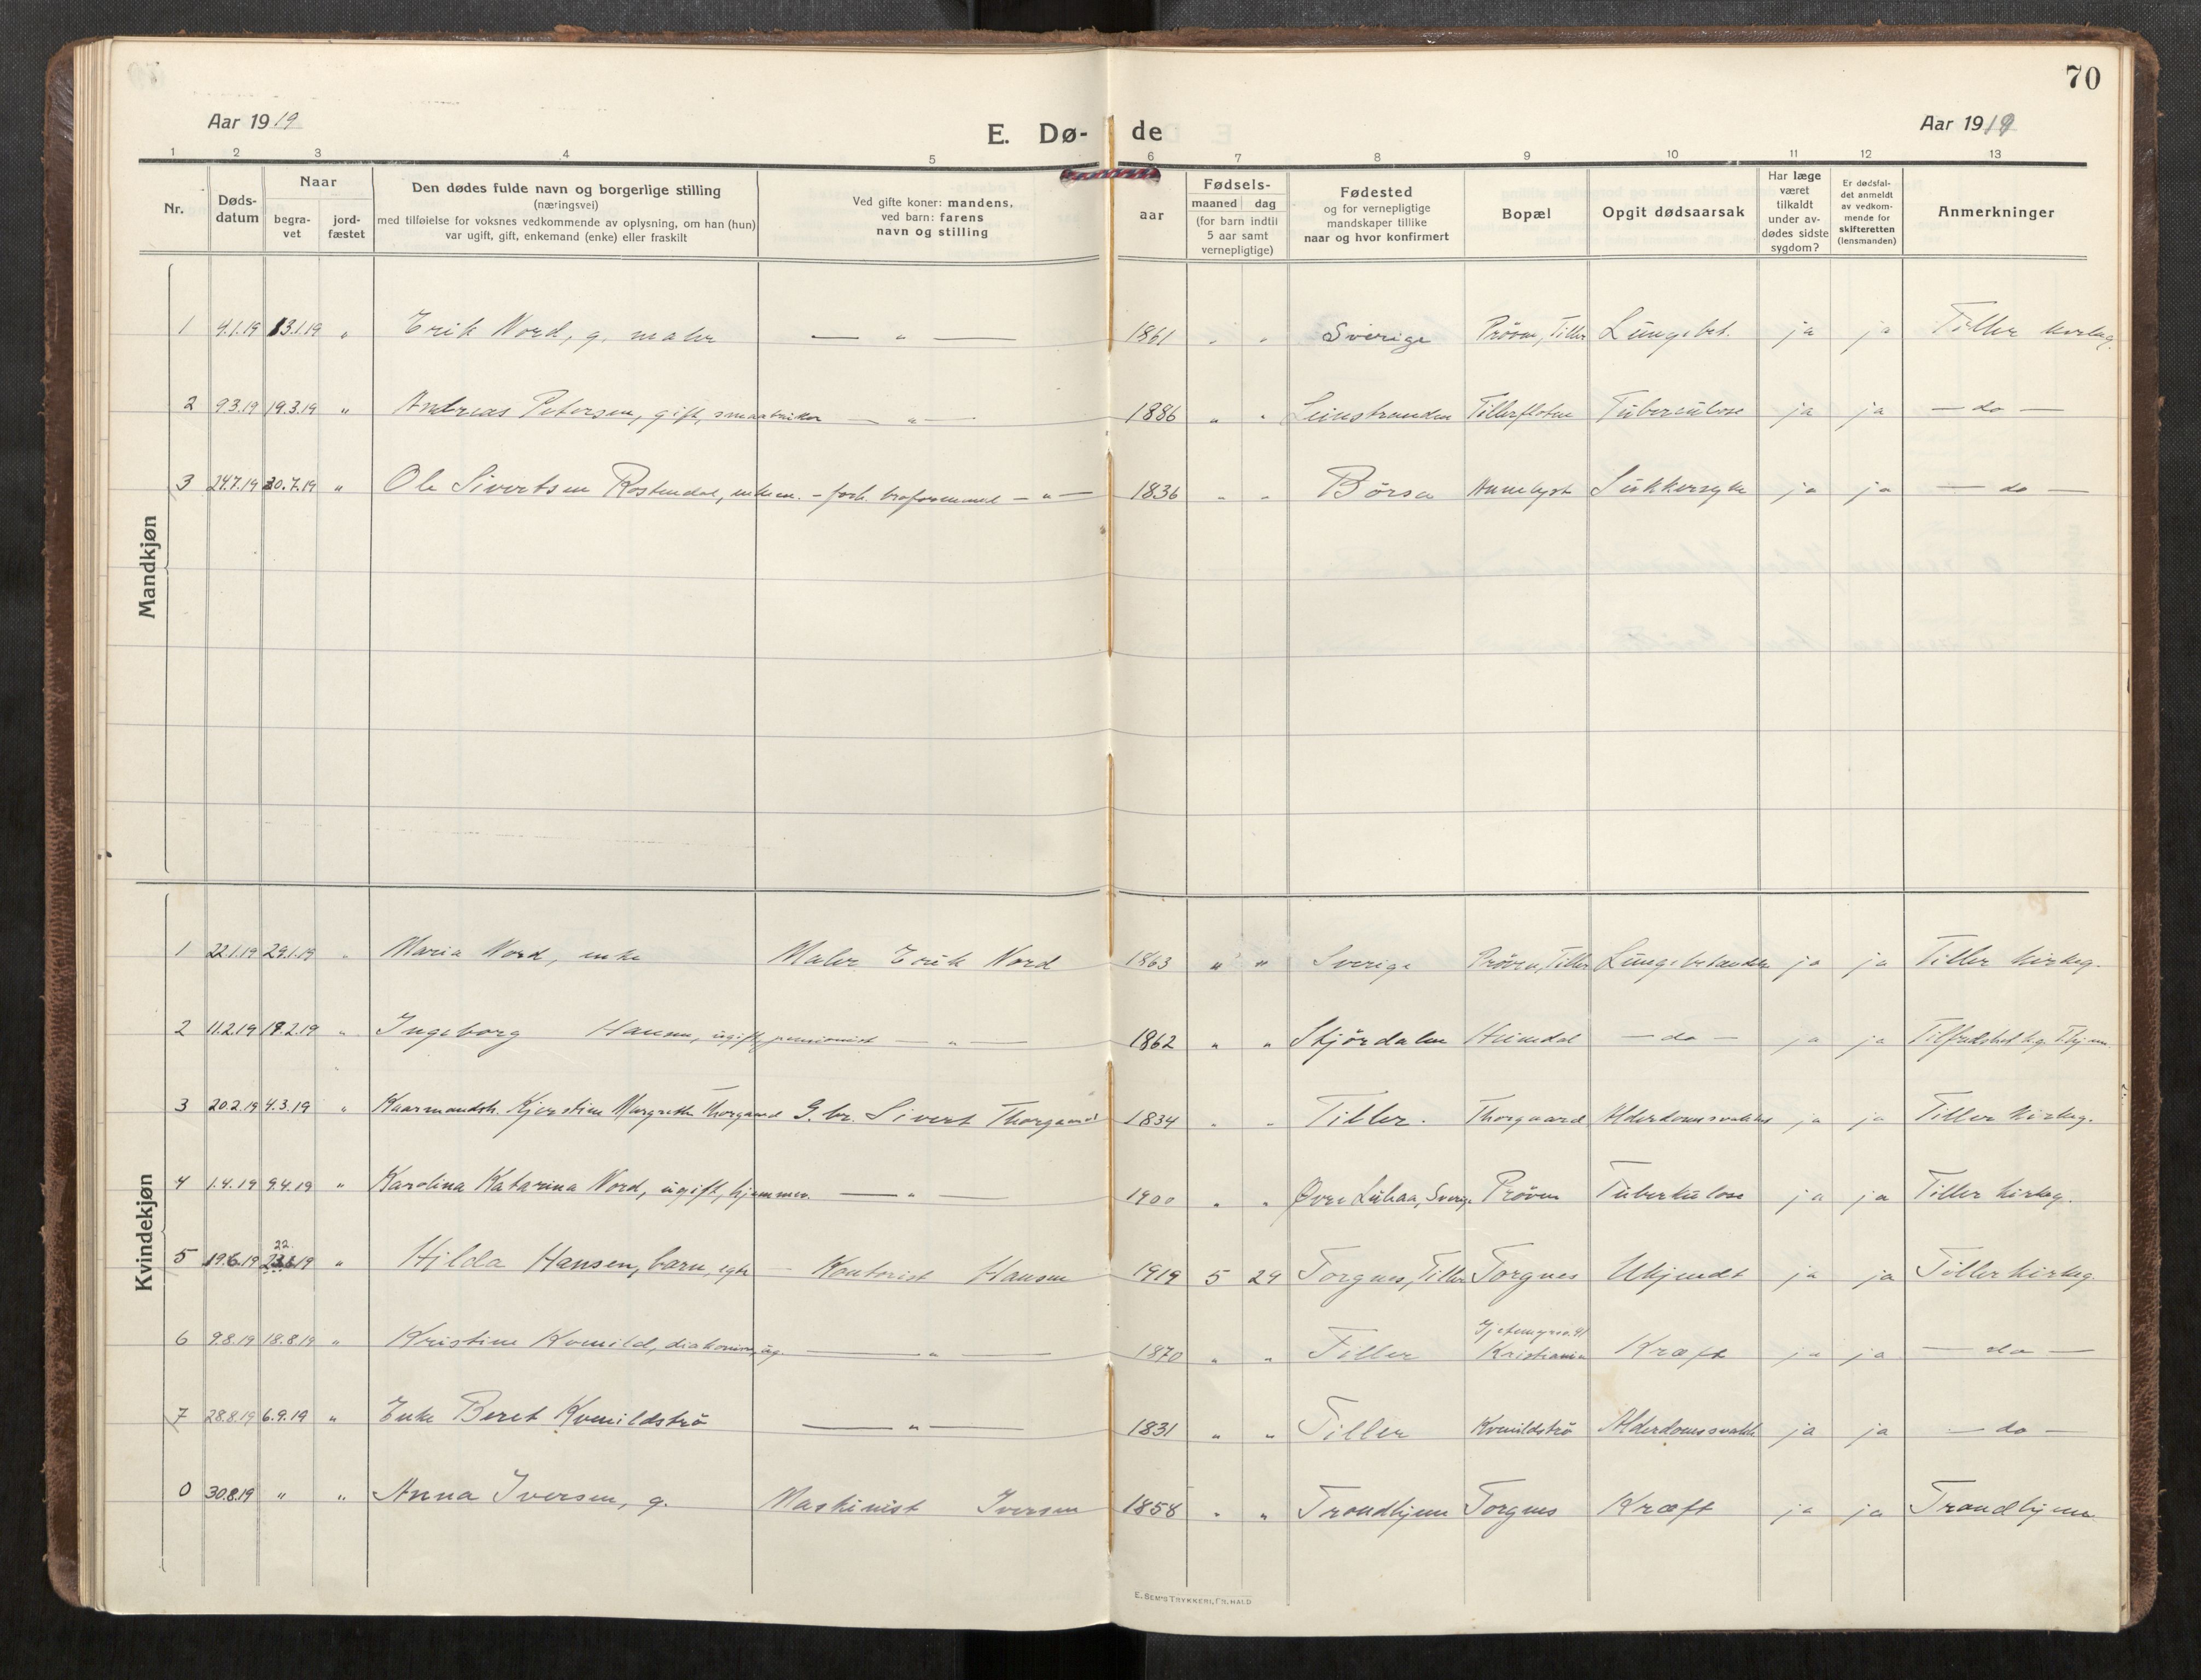 70
Aar 1919
E. Dø- de
Aar 1919
1 2 3 4 5 6 7 8 9 10 11 12 13
Nr.
Døds-
datum
Naar
begra-
vet
jord-
fæstet
Den dødes fulde navn og borgerlige stilling
(næringsvei)
med tilføielse for voksnes vedkommende av oplysning, om han (hun)
var ugift, gift, enkemand (enke) eller fraskilt
Ved gifte koner: mandens,
ved barn: farens
navn og stilling
aar
Fødsels-
maaned dag
(for barn indtil
5 aar samt
vernepligtige)
Fødested
og for vernepligtige
mandskaper tillike
naar og hvor konfirmert
Bopæl
Opgit dødsaarsak
Har læge
været
tilkaldt
under av-
dødes sidste
sygdom?
Er dødsfal-
det anmeldt
av vedkom-
mende for
skifteretten
(lensmanden)
Anmerkninger
Mandkjøn
1 4.1.19 13.1.19 " Erik Nord, g. maler — " — 1861 " " Sverige Prøven, Tiller Lungebet. ja ja Tiller kirkeg.
2 9.3.19 19.3.19 " Andreas Petersen, gift, smaabruker — " — 1886 " " Leinstranden Tillerfloten Tuberculose ja ja — do —
3 24.7.19 30.7.19 " Ole Sivertsen Rostendal, enkem. - forh. — " — 1836 " " Börsa Annelyst Sukkersyke ja ja — do —
Kvindekjøn
1 22.1.19 29.1.19 " Maria Nord, enke Maler Erik Nord 1863 " " Sverige Prøven, Tiller Lungebetændelse ja ja Tiller kirkeg.
2 11.2.19 18.2.19 " Ingeborg Hansen, ugift, pensionist — " — 1862 " " Stjördalen Heimdal — do — ja ja Tilfredshet kg. Thjem.
3 20.2.19 4.3.19 " Kaarmandsk. Kjerstine Margrethe Thorgaard G.br. Sivert Thorgaard 1834 " " Tiller. Thorgaard Alderdomssvakhet ja ja Tiller kirkeg.
4 1.4.19 9.4.19 " Karolina Katarina Nord, ugift, hjemmev. — " — 1900 " " Øvre Luhaa, Sverige Prøven Tuberkulose ja ja Tiller kirkeg.
22.
5 19.6.19 23.6.19 " Hilda Hansen, barn, egte — Kontorist Hansen 1919 5 29 Torgnes, Tiller Torgnes Ukjendt ja ja Tiller kirkeg.
6 9.8.19 18.8.19 " Kristine Kvenild, diakonisse, ug. — " — 1870 " " Tiller Kristiania Kræft ja ja — do —
7 28.8.19 6.9.19 " Enke Beret Kvenildströ — " — 1831 " " Tiller Kvenildströ Alderdomssvakhet ja ja — do —
0 30.8.19 " " Anna Iversen, g. Maskinist Iversen 1858 " " Trondhjem Torgnes Kræft ja ja Trondhjem
E. SEM'S TRYKKERI, FR.HALD